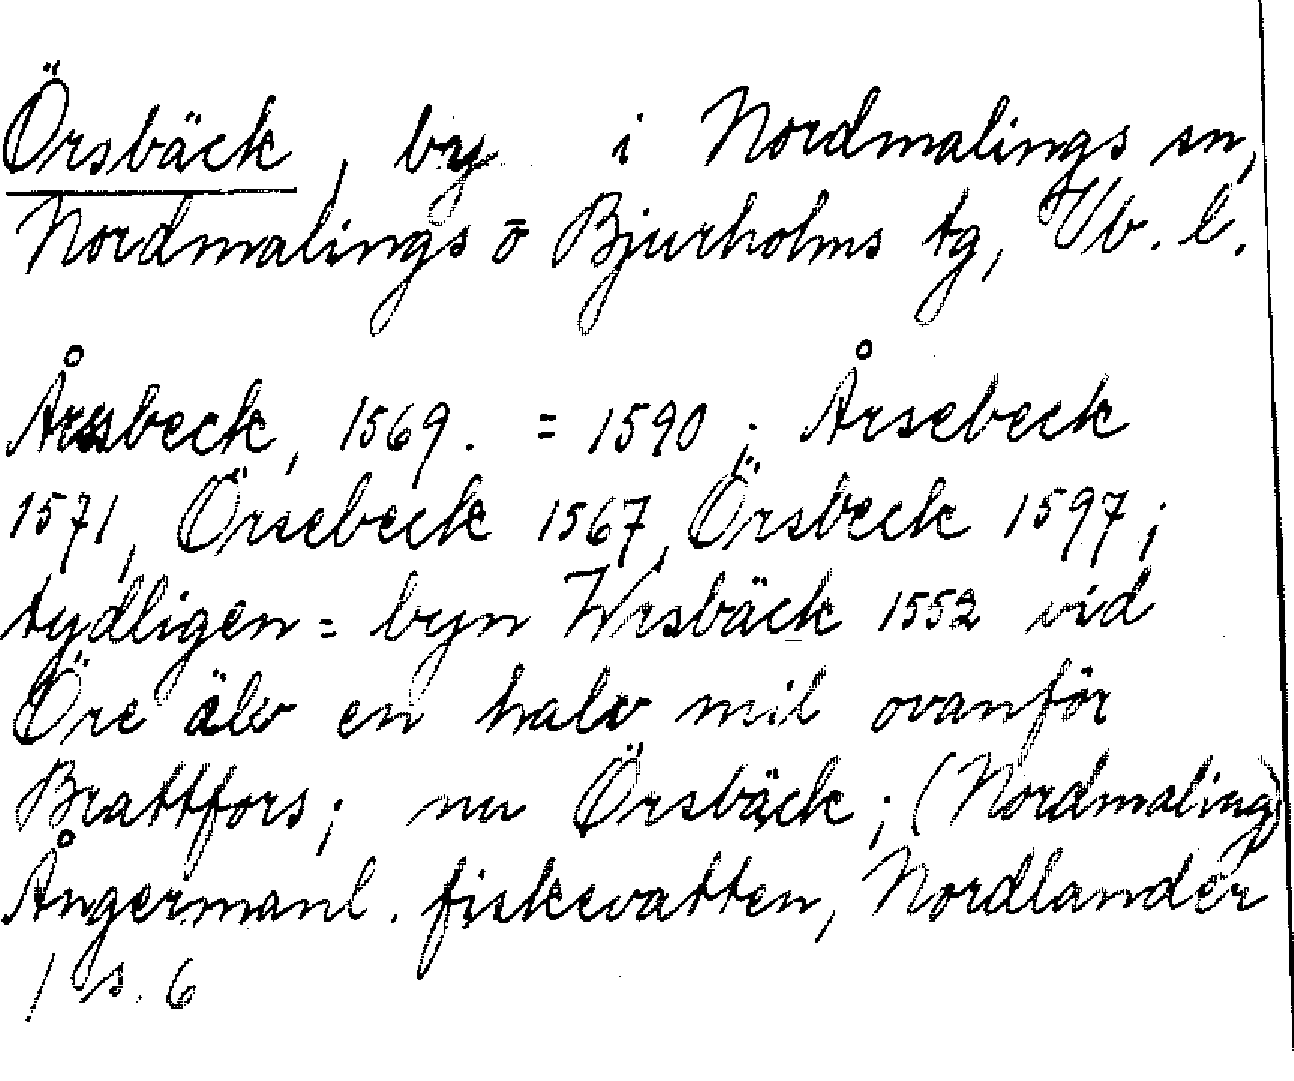 Örsbäck, by i Nordmalings sn,
Nordmalings o Bjurholms tg, Vb. l.
Årsbeck, 1569. = 1590; Årsebeck
1571, Örsebeck 1567, Örsbeck 1597;
tydligen = byn Wrsbäck 1552 vid
Öre älv en halv mil ovanför
Brattfors; nu Örsbäck; (Nordmaling)
Ångermanl. fiskevatten, Nordlander
/ s. 6